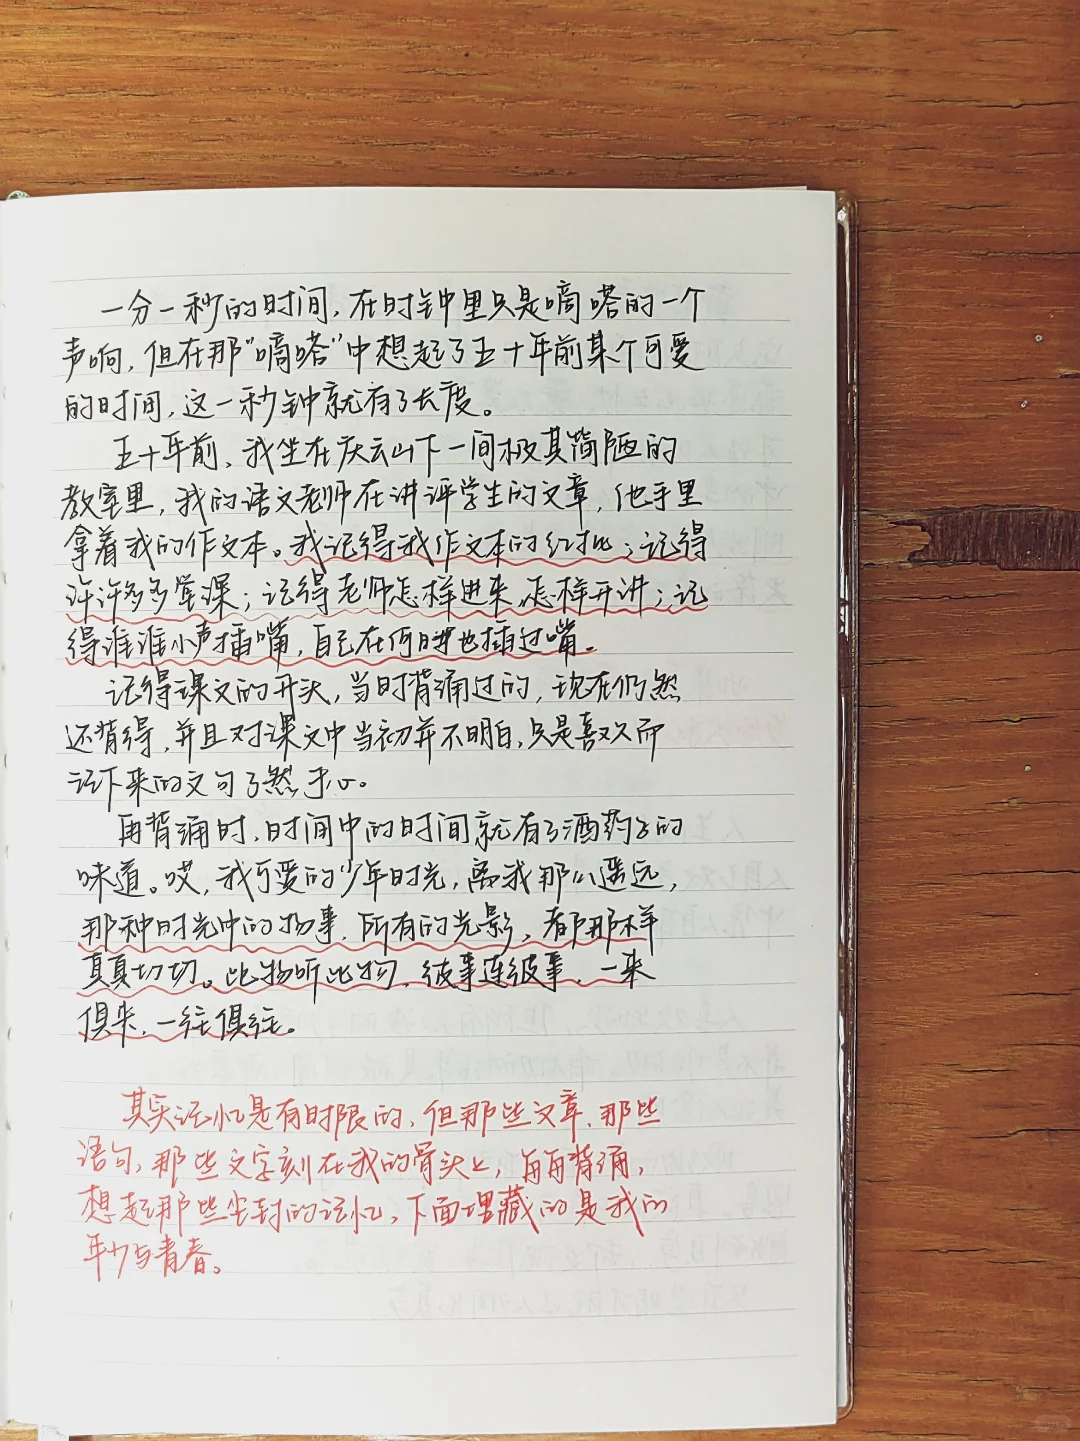 一分一秒的时间,在时钟里只是嘀嗒的一个
声响,但在那“嘀嗒”中想起了五十年前某个可爱
的时间,这一秒钟就有了长度。
五十年前,我坐在庆云山下一间极其简陋的
教室里,我的语文老师在讲评学生的文章,他手里
拿着我的作文本。我记得我作文本的红批;记得
许许多多堂课;记得老师怎样进来,怎样开讲;记
得谁谁小声插嘴,自己在何时也插过嘴。
记得课文的开头,当时背诵过的,现在仍然
还背得,并且对课文中当初并不明白,只是喜欢而
记下来的文句了然于心。
再背诵时,时间中的时间就有了酒药子的
味道。哎,我可爱的少年时光,离我那么遥远,
那种时光中的物事,所有的光影,都那样
真真切切。此物听此物,彼事连彼事,一来
俱来,一往俱往。
其实记忆是有时限的,但那些文章、那些
语句,那些文字刻在我的骨头上,每每背诵,
想起那些尘封的记忆,下面埋藏的是我的
年少与青春。